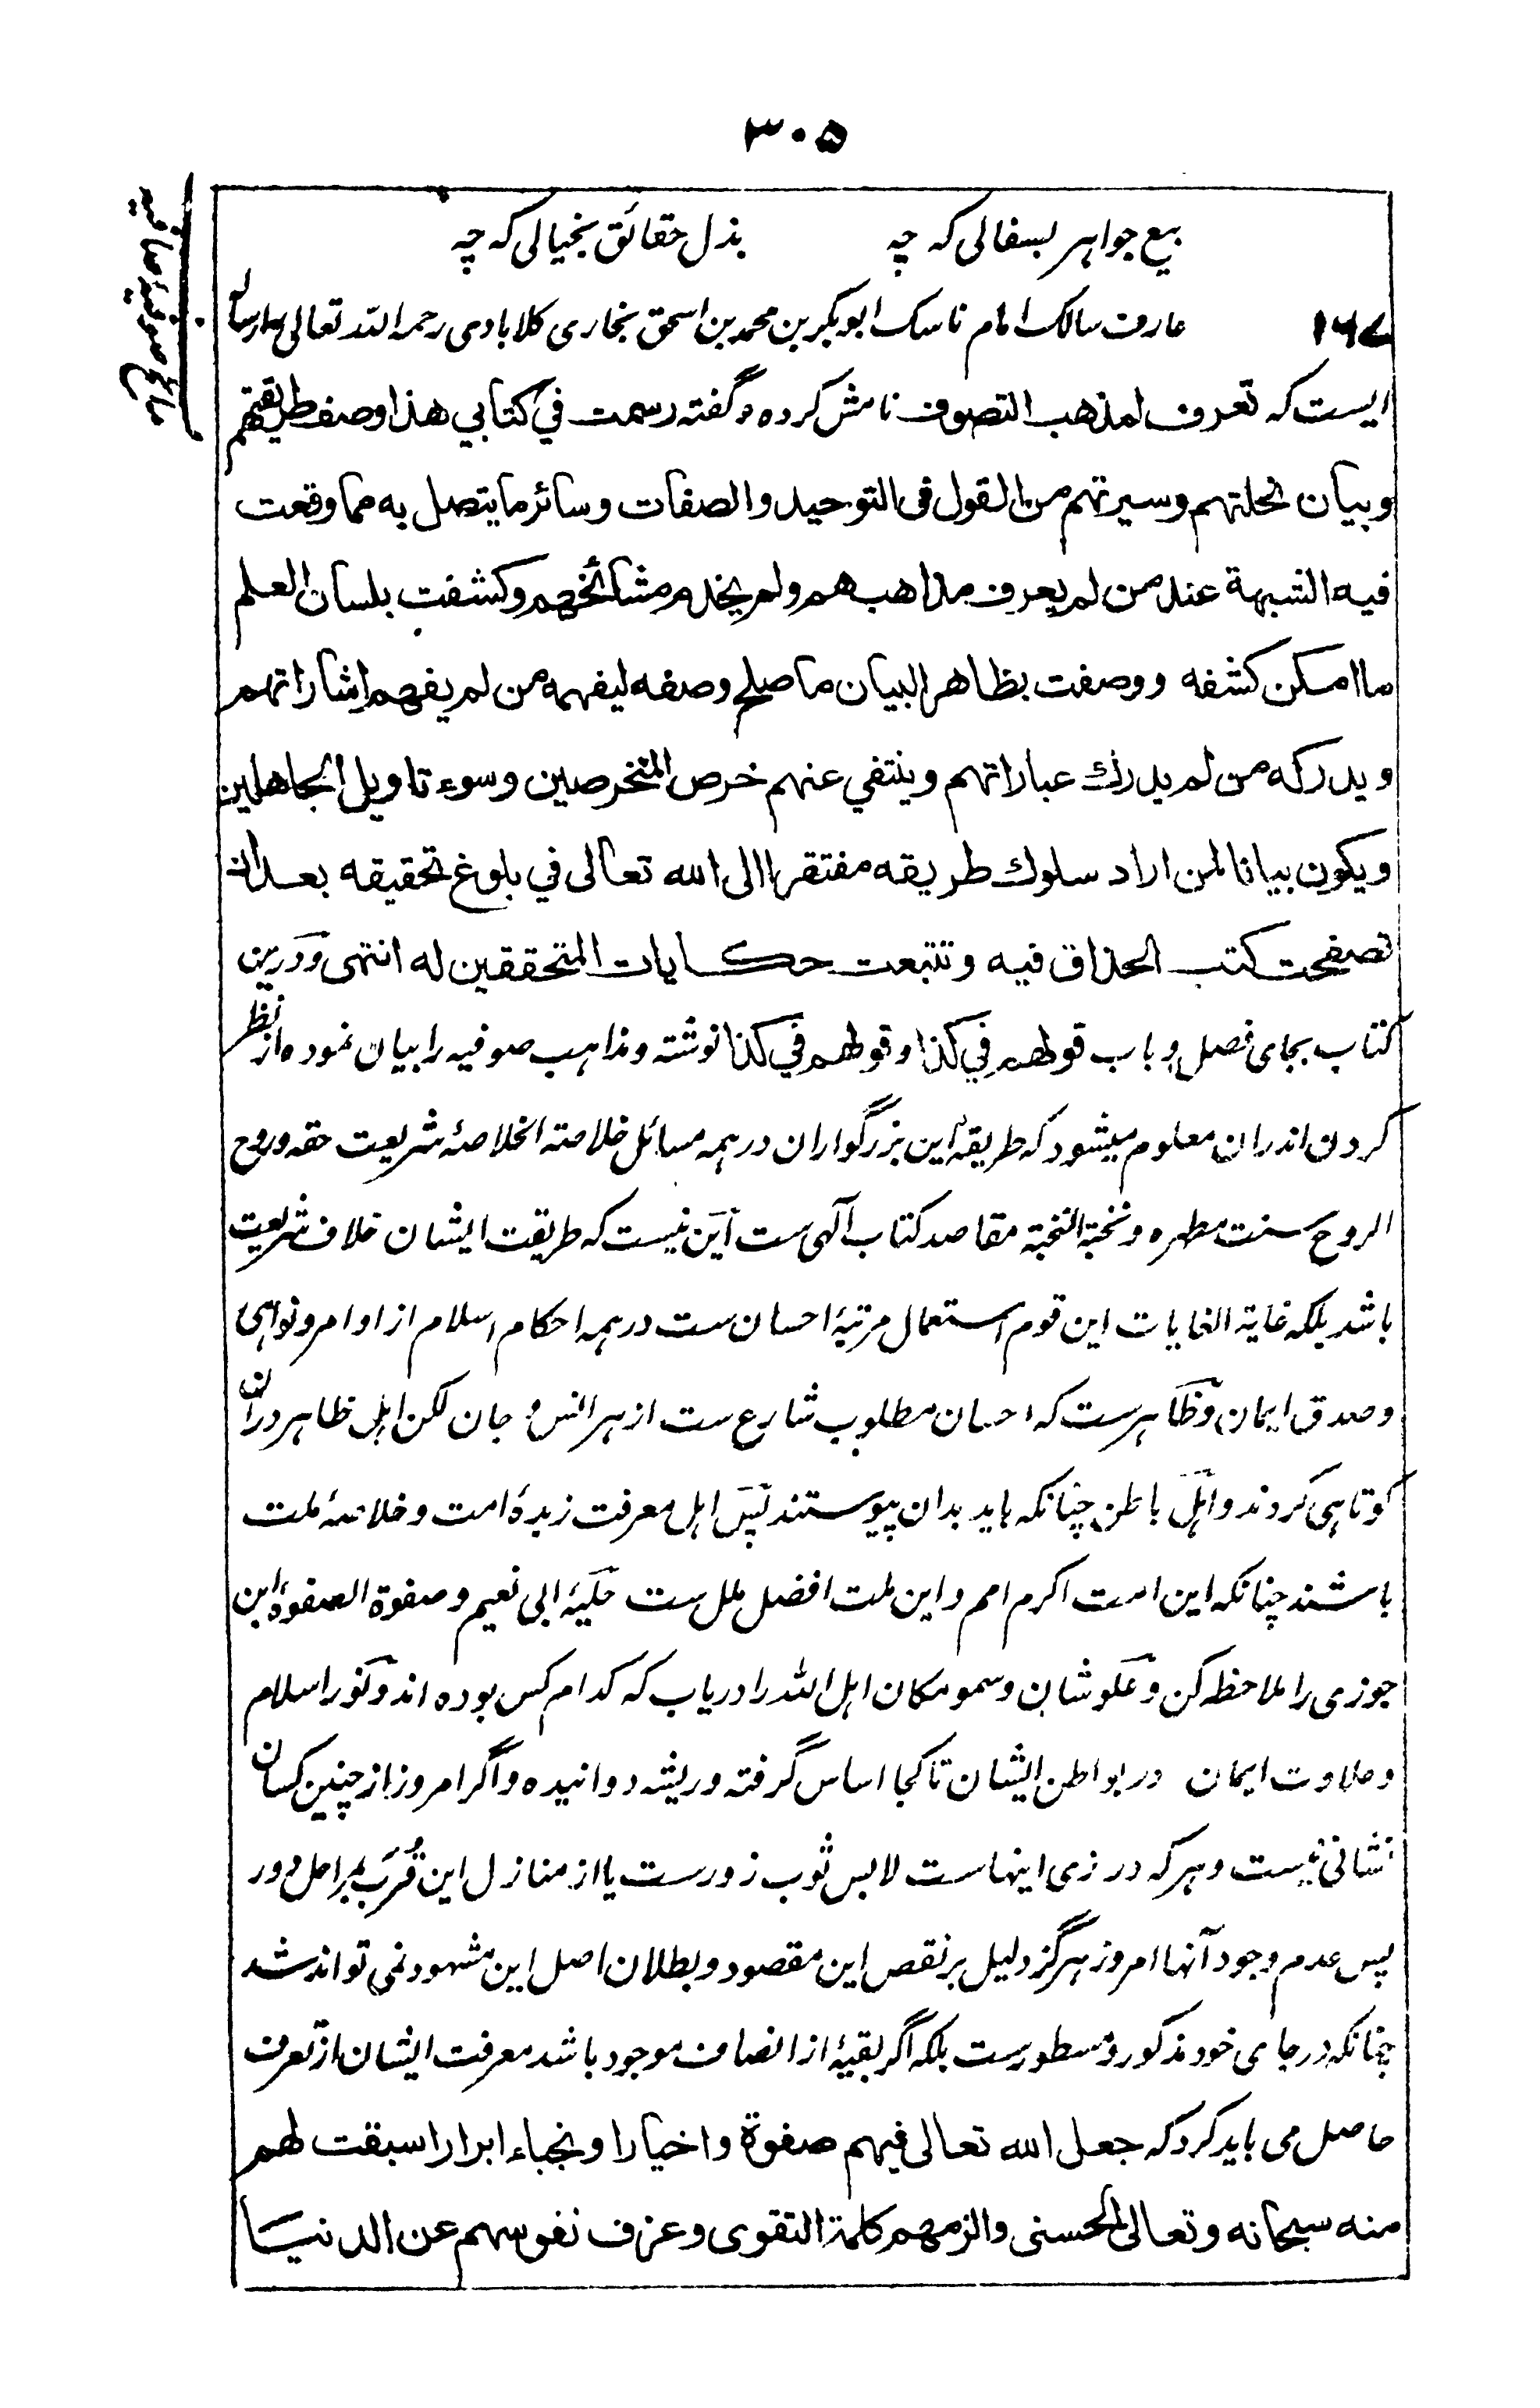 ۳۰۵
مدائح صوفیۂ صافیہ
بیع جواہر بسفالی کہ چہ بذل حقائق بخیالی کہ چہ
۱۶۷ عارف سالک امام ناسک ابو بکر بن محمد بن اسحق بخاری کلابادی رحمہ اللہ تعالی را رسالہ
ایست کہ تعرف لمذهب التصوف نامش کردہ و گفتہ رسمت في كتابي هذا وصف طريقتهم
وبيان نحلتهم وسيرتهم من القول فى التوحيد والصفات وسائر ما يتصل به مما وقعت
فيه الشبهة عند من لم يعرف مذاهبهم ولم يخدم مشائخهم وكشفت بلسان العلم
ما امكن كشفه ووصفت بظاهر البيان ما صلح وصفه ليفهمه من لم يفهم اشاراتهم
ويدركه من لم يدرك عباراتهم وينتفي عنهم خرص المتخرصين وسوء تاويل الجاهلين
ويكون بيانا لمن اراد سلوك طريقه مفتقرا الى الله تعالى في بلوغ تحقيقه بعد ان
تصفحت كتب الحذاق فيه وتتبعت حكايات المتحققين له انتهى ودرین
کتاب بجای فصل و باب قولهم في كذا وقولهم في كذا نوشتہ و مذاہب صوفیہ را بیان نمودہ از نظر
کردن اندران معلوم میشود کہ طریقۂ این بزرگواران در ہمہ مسائل خلاصۃ الخلاصۂ شریعت حقہ و روح
الروح سنت مطہرہ و نخبۃ النخبۃ مقاصد کتاب آلہی ست این نیست کہ طریقت ایشان خلاف شریعت
باشد بلکہ غایۃ الغایات این قوم استعمال مرتبۂ احسان ست در ہمہ احکام اسلام از اوامر و نواہی
و صدق ایمان و ظاہرست کہ احسان مطلوب شارع ست از ہر انس و جان لکن اہل ظاہر دران
کوتاہی کردند و اہل باطن چنانکہ باید بدان پیوستند پس اہل معرفت زبدۂ امت و خلاصۂ ملت
باشند چنانکہ این امت اکرم امم و این ملت افضل ملل ست حلیۂ ابی نعیم و صفوۃ الصفوۂ ابن
جوزی را ملاحظہ کن و علو شان و سمو مکان اہل اللہ را دریاب کہ کدام کس بودہ اند و نور اسلام
و حلاوت ایمان در بواطن ایشان تا کجا اساس گرفتہ و ریشہ دوانیدہ و اگر امروز از چنین کسان
نشانی نیست و ہر کہ در زی اینہاست لابس ثوب زورست یا از منازل این قُرَب بمراحل دور
پس عدم وجود آنہا امروز ہرگز دلیل بر نقص این مقصود و بطلان اصل این مشہود نمی تواند شد
چنانکہ در جای خود مذکور و مسطورست بلکہ اگر بقیۂ از انصاف موجود باشد معرفت ایشان از تعرف
حاصل می باید کرد کہ جعل الله تعالى فيهم صفوة واخيارا ونجباء ابرارا سبقت لهم
منه سبحانه وتعالى الحسنى والزمهم كلمة التقوى وعزف نفوسهم عن الدنيا